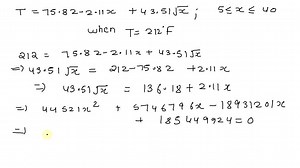 T = 75.82 - 2.11x + 43.51√x ; 5 ≤ x ≤ 40
when T = 212°F
212 = 75.82 - 2.11x + 43.51√x
⇒ 43.51 √x = 212 - 75.82 + 2.11x
⇒ 43.51√x = 136.18 + 2.11x
⇒ 44521x² + 5746796x - 18931201x
+ 185449924 = 0
⇒